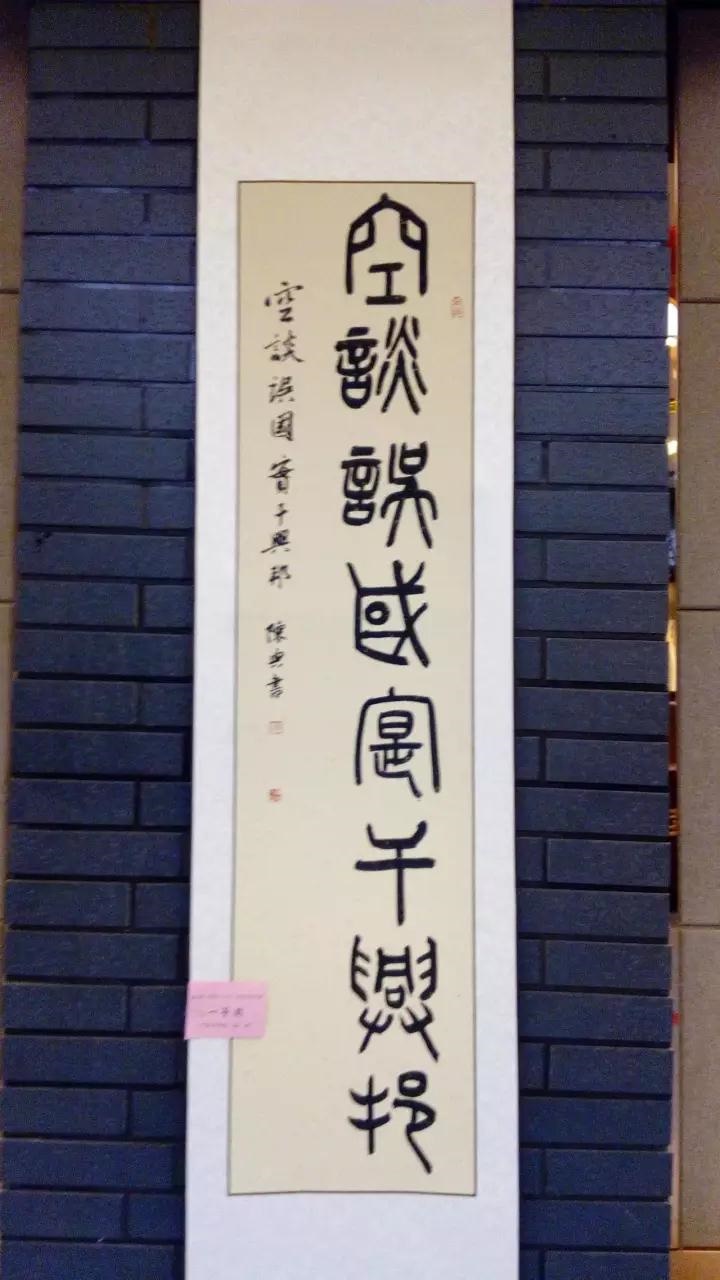 空談誤國寔干興邦
空談误国實干興邦 陳典書
一等奖